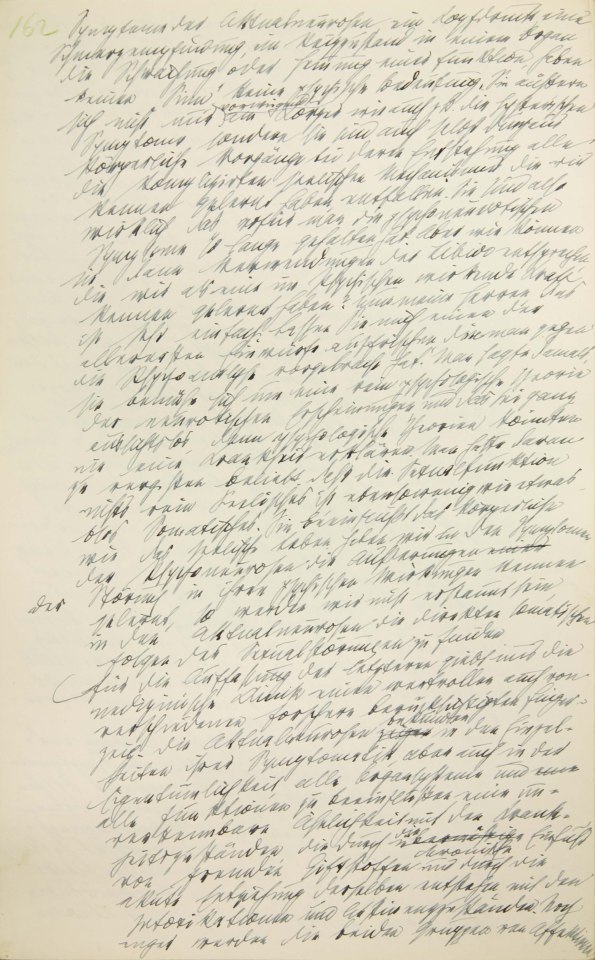 162 Symptome der Aktualneurosen ein Kopfdruck eine
Schmerzempfindung ein Reizzustand in einem Organ
die Schwächung oder Hemmung einer Funktion haben
keinen „Sinn“ keine psychische Bedeutung. Sie äußern
sich nicht nur vorwiegend am Körper wie auch zB die hysterischen
Symptome sondern sie sind auch selbst durchaus
körperliche Vorgänge bei deren Entstehung alle
die komplizirten seelischen Mechanismen die wir
kennen gelernt haben entfallen. Sie sind also
wirklich das wofür man die psychoneurotischen
Symptome so lange gehalten hat. Aber wie können
sie dann Verwendungen der Libido entsprechen
die wir als eine im Psychischen wirkende Kraft
kennen gelernt haben? Nun meine Herren das
ist sehr einfach. Lassen Sie mich einen der
allerersten Einwürfe auffrischen die man gegen
die Psychoanalyse vorgebracht hat. Man sagte damals
sie bemühe sich um eine rein psychologische Theorie
der neurotischen Erscheinungen und das sei ganz
aussichtslos denn psychologische Theorien könnten
nie eine Krankheit erklären. Man hatte daran
zu vergessen beliebt, daß die Sexualfunktion
nichts rein Seelisches ist ebensowenig wie etwas
blos Somatisches. Sie beeinflußt das körperliche
wie das seelische Leben. Haben wir in den Symptomen
der Psychoneurosen die Äußerungen
der Störung in ihren psychischen Wirkungen kennen
gelernt, so werden wir nicht erstaunt sein
in den Aktualneurosen die direkten somatischen
Folgen der Sexualstörungen zu finden
Für die Auffassung der letzteren giebt uns die
medizinische Klinik einen wertvollen auch von
verschiedenen Forschern berücksichtigten Finger-
zeig. Die Aktualneurosen bekunden in den Einzel-
heiten ihrer Symptomatik aber auch in der
Eigentümlichkeit alle Organsysteme und
alle Funktionen zu beeinflußen eine un-
verkennbare Ähnlichkeit mit den Krank-
heitszuständen die durch den chronischen Einfluß
von fremden Giftstoffen und durch die
akute Entziehung derselben entstehen mit den
Intoxikationen und Abstinenzzuständen. Noch
enger werden die beiden Gruppen von Affektionen